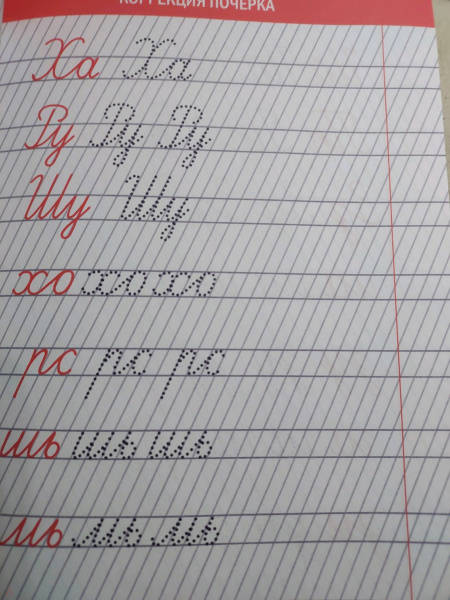 КОРРЕКЦИЯ ПОЧЕРКА
Ха Ха
Ру Ру Ру
Шу Шу
хо хо хо
рс рс рс
шь шь шь
мь мь мь